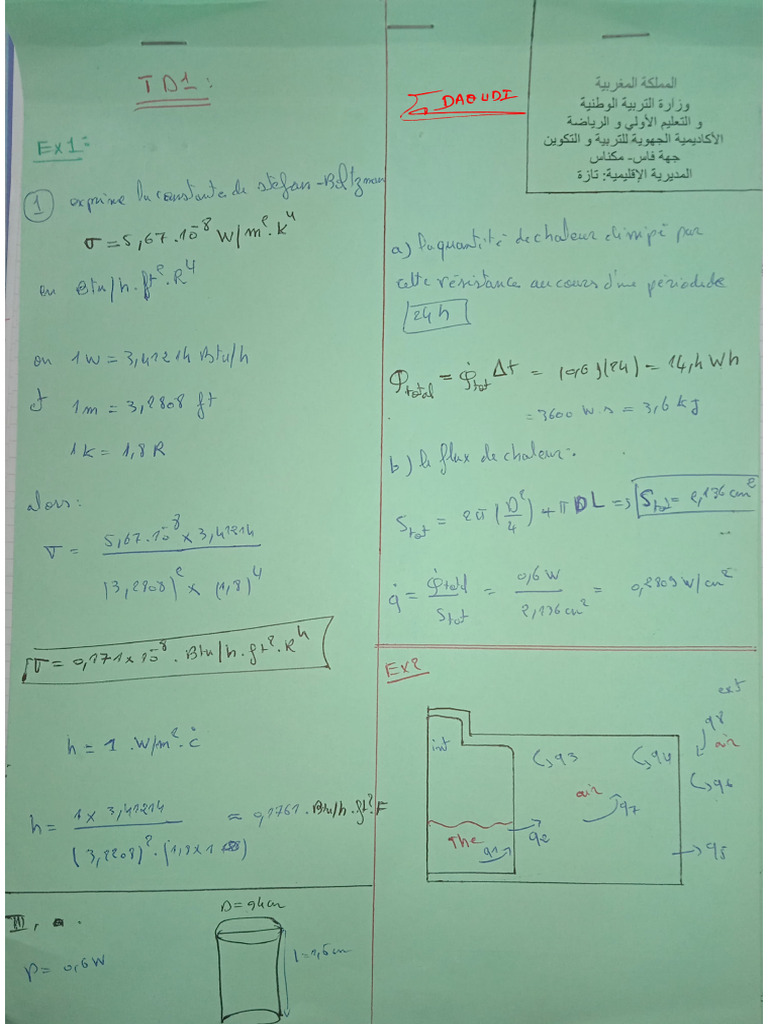 TD1:
Ex1:
① exprime la constante de stefan-Boltzman
σ = 5,67.10⁻⁸ W/m².K⁴
en Btu/h.ft².R⁴
on 1W = 3,41214 Btu/h
et 1m = 3,2808 ft
1K = 1,8 R
alors:
σ = 5,67.10⁻⁸ x 3,41214
(3,2808)² x (1,8)⁴
σ = 0,171 x 10⁻⁸. Btu/h.ft².R⁴
h = 1 .W/m².°C
h = 1 x 3,41214 = 0,1761. Btu/h.ft².F
(3,2808)².(1,8x1)
II, a.
P = 0,6W
D = 0,4cm
l = 1,5cm
DAOUDI
المملكة المغربية
وزارة التربية الوطنية
و التعليم الأولي و الرياضة
الأكاديمية الجهوية للتربية و التكوين
جهة فاس- مكناس
المديرية الإقليمية: تازة
a) la quantité de chaleur dissipé par
cette résistance au cours d'une période de
24h
Φtotal = φ̇tot Δt = (0,6)(24) = 14,4 Wh
= 3600 W.s = 3,6 kJ
b) le flux de chaleur:
Stot = 2π(D²/4) + πDL => Stot = 2,136 cm²
q̇ = φ̇total / Stot = 0,6 W / 2,136 cm² = 0,2809 W/cm²
Ex2
ext
int
q3
q4
q8
air
q6
air
q7
The
q1
q2
q5